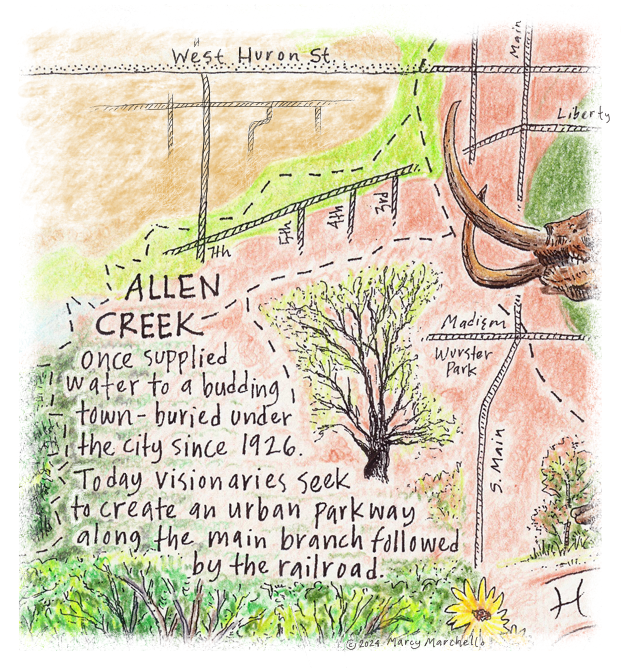 West Huron St
Main
Liberty
7th
5th
4th
3rd
ALLEN
CREEK
Once supplied
water to a budding
town - buried under
the city since 1926.
Today visionaries seek
to create an urban parkway
along the main branch followed
by the railroad.
Madison
Wurster
Park
S. Main
H
© 2024 Marcy Marchello